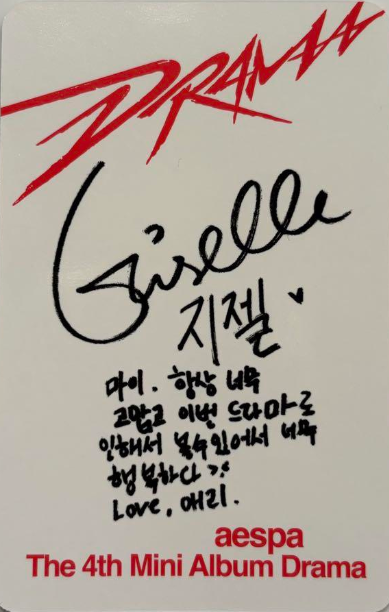 DRAMA
Giselle
지젤 ♥
마이. 항상 너무
고맙고 이번 드라마로
인해서 볼수있어서 너무
행복하다 :'
Love, 애리.
aespa
The 4th Mini Album Drama